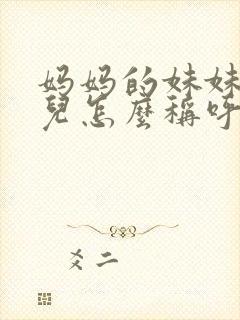 妈妈的妹妹
兒怎麼稱呼
爻二